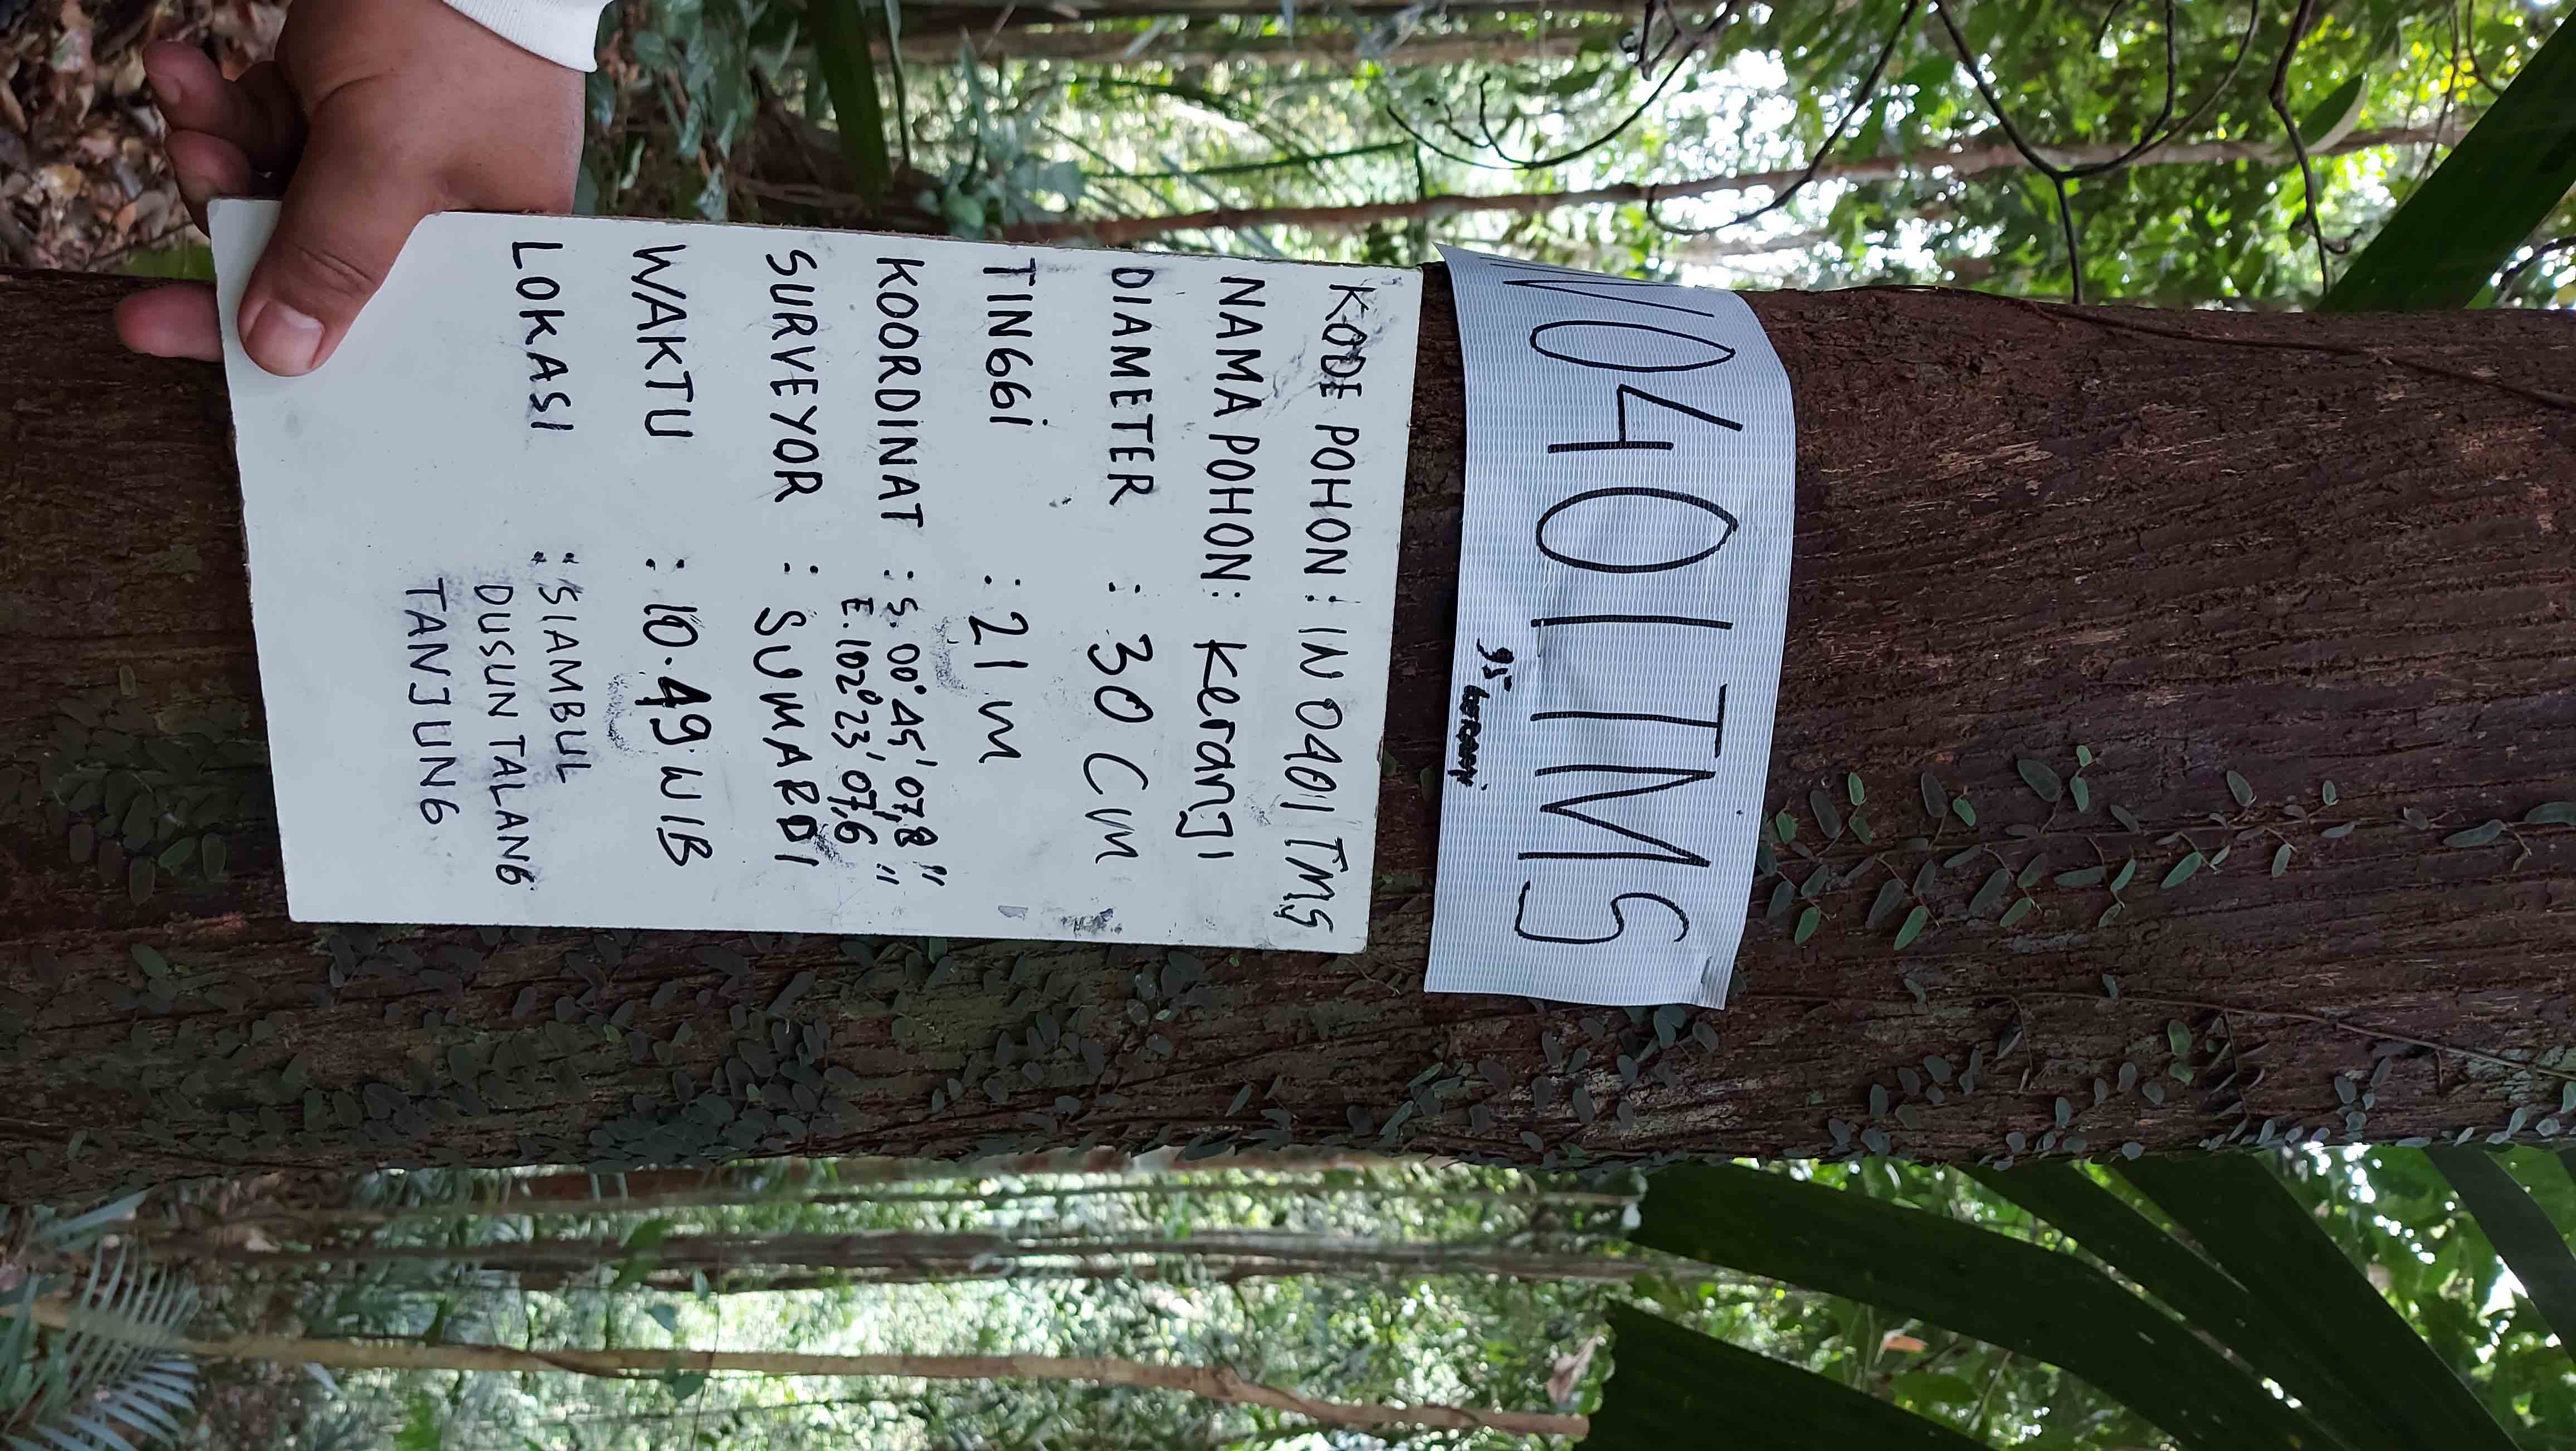 N0401TMS
95
KODE POHON : IN 0401 TMS
NAMA POHON: Keranji
DIAMETER : 30 CM
TINGGi : 21 m
KOORDINAT : S. 00° 45' 07,8"
E. 102° 23' 07,6"
SURVEYOR : SUMARDI
WAKTU : 10.49 WIB
LOKASI : SIAMBUL
DUSUN TALANG
TANJUNG